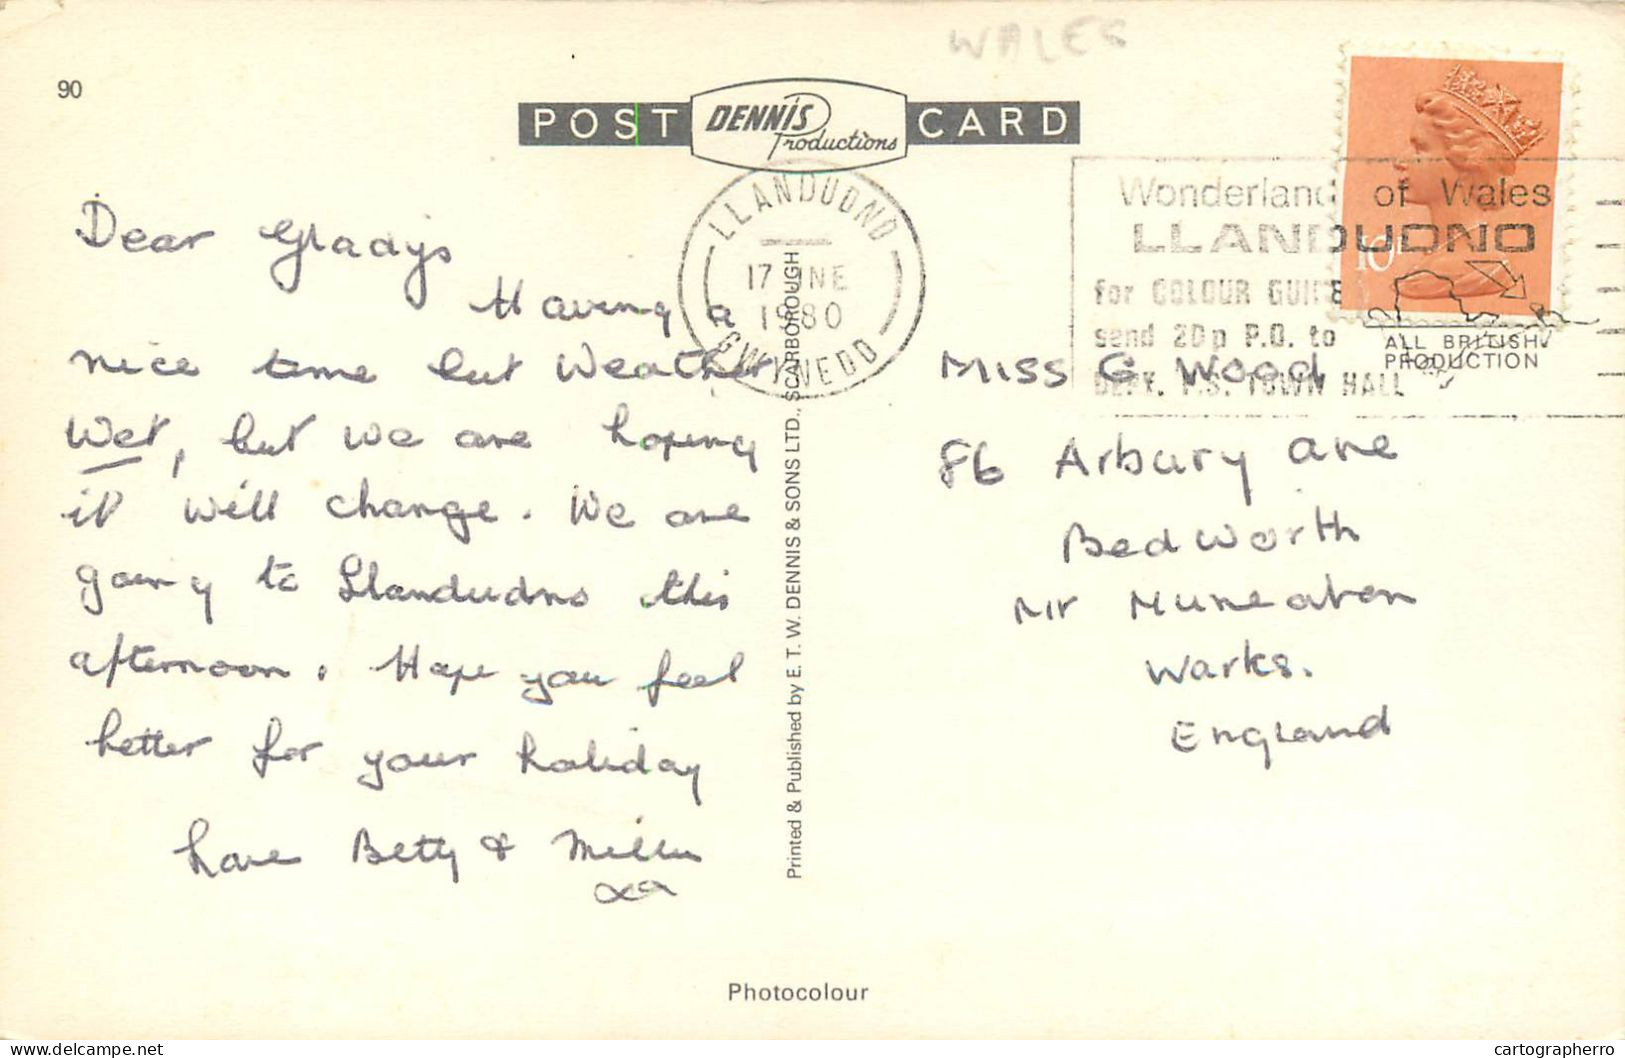 WALES
90
POST DENNIS Productions CARD
LLANDUDNO
17 JNE
1980
GWYNEDD
Wonderland of Wales
LLANDUDNO
for COLOUR GUIDE
send 20p P.O. to
DEPT. P.S. TOWN HALL
10P
ALL BRITISH
PRODUCTION
Dear Gladys
Having a
nice time but Weather
Wet, but we are hoping
it will change. We are
going to Llandudno this
afternoon. Hope you feel
better for your holiday
love Betty &
Printed & Published by E. T. W. DENNIS & SONS LTD., SCARBOROUGH
Miss G Wood
86 Arbury ave
Bedworth
Nr Nuneaton
Warks.
England
Photocolour
delcampe.net
cartographerro